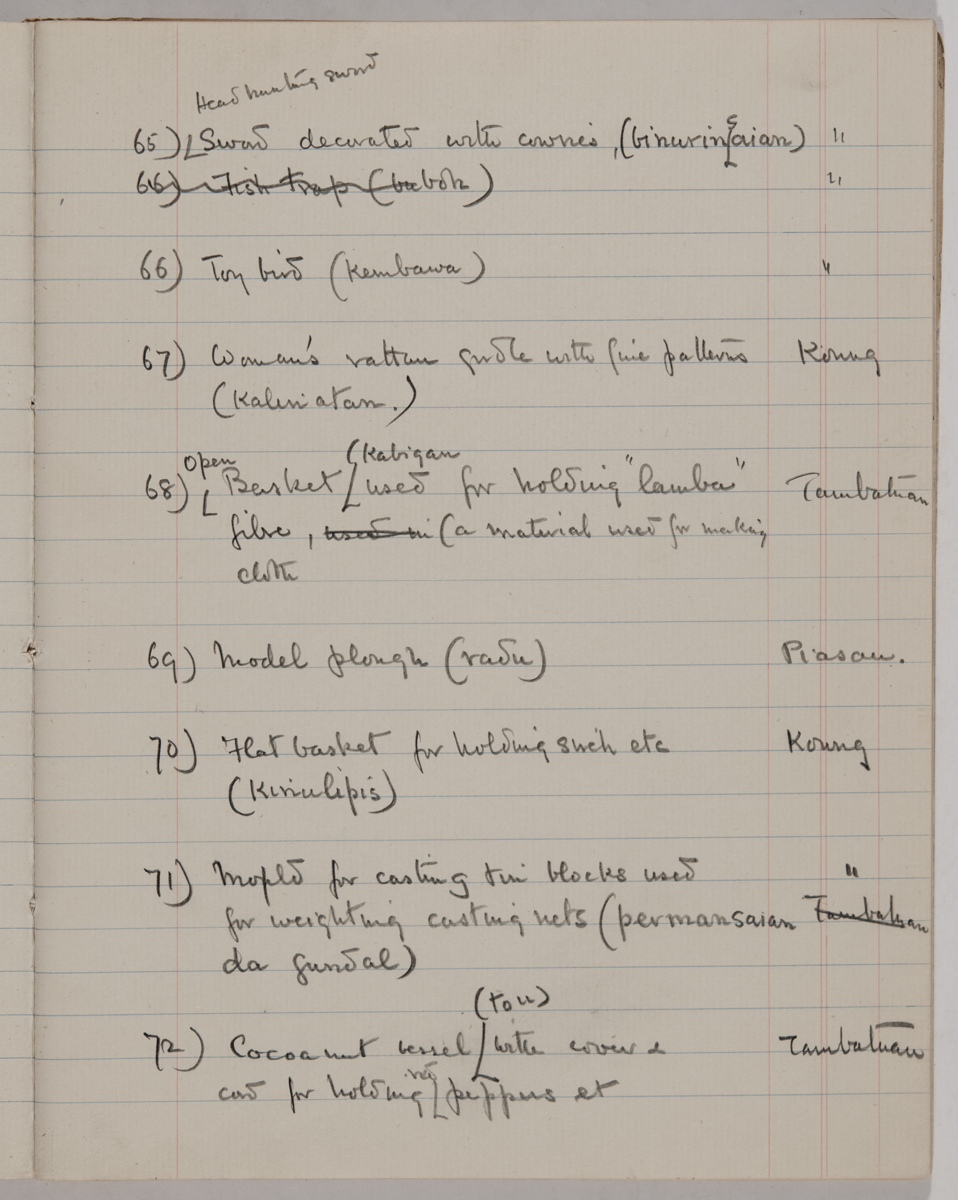 Head hunting sword
65) Sword decorated with cowries, (binurinsaian) "
66) Fish trap (bubok) "
66) Toy bird (Kembawa) "
67) Woman's rattan girdle with fine patterns Koung
(Kaliniatan.)
Open (Kabigan
68) Basket used for holding "lamba" Tambatuan
fibre, used in (a material used for making
cloth
69) Model plough (radu) Piasau.
70) Flat basket for holding sireh etc Koung
(Kinulipis)
71) Mould for casting tin blocks used "
for weighting casting nets (permansaian Tambatuan
da gundal)
(tou)
72) Cocoanut vessel with cover & Tambatuan
red
cord for holding peppers etc